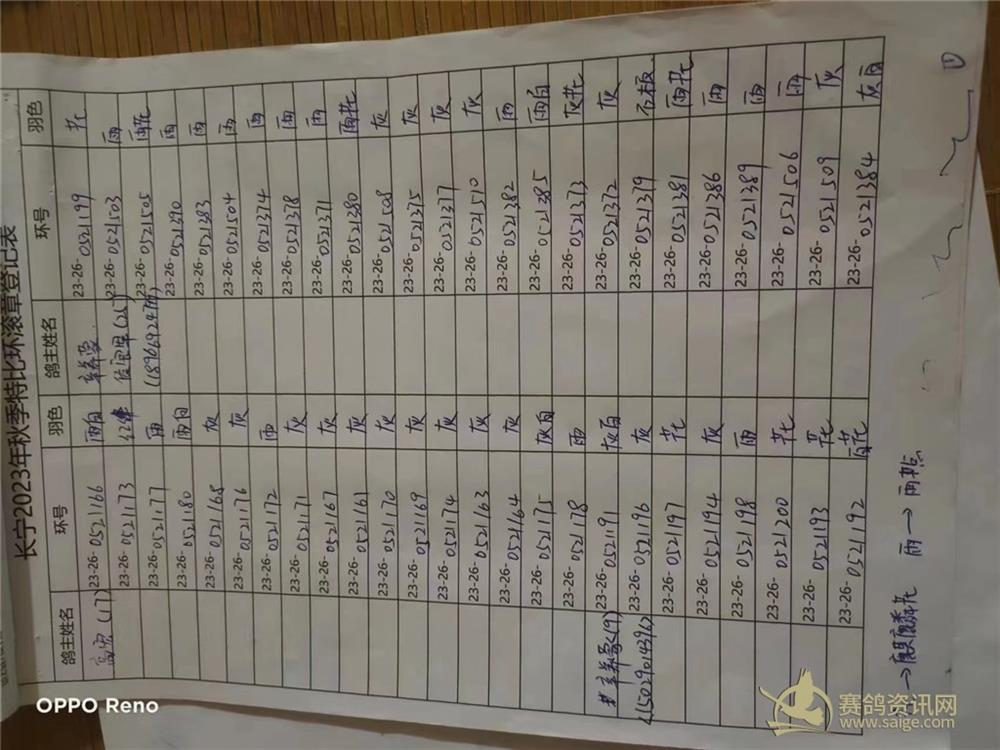 长宁2023年秋季特比环滚章登记表
鸽主姓名 环号 羽色 鸽主姓名 环号 羽色
(17) 23-26-0521166 雨白 23-26-0521199 花
23-26-0521173 23-26-0521503 雨
23-26-0521177 雨 23-26-0521505 雨花
23-26-0521180 雨白 23-26-0521390 雨
23-26-0521168 灰 23-26-0521383 雨
23-26-0521176 灰 23-26-0521504 雨
23-26-0521172 雨 23-26-0521374 雨
23-26-0521171 灰 23-26-0521378 雨
23-26-0521167 灰 23-26-0521371 雨
23-26-0521161 灰 23-26-0521380 雨花
23-26-0521170 灰 23-26-0521508 灰
23-26-0521169 灰 23-26-0521375 灰
23-26-0521174 灰 23-26-0521377 灰
23-26-0521163 灰 23-26-0521510 灰
23-26-0521164 灰 23-26-0521382 雨
23-26-0521175 灰白 23-26-0521385 雨白
23-26-0521178 雨 23-26-0521373 灰花
(9) 23-26-0521191 灰白 23-26-0521372 灰
(15029014396) 23-26-0521196 灰 23-26-0521379 石板
23-26-0521197 花 23-26-0521381 雨花
23-26-0521194 灰 23-26-0521386 雨
23-26-0521198 雨 23-26-0521389 雨
23-26-0521200 花 23-26-0521506 雨
23-26-0521193 花 23-26-0521509 灰
23-26-0521192 23-26-0521384 灰白
雨→雨点
①
OPPO Reno
赛鸽资讯网
www.saige.com